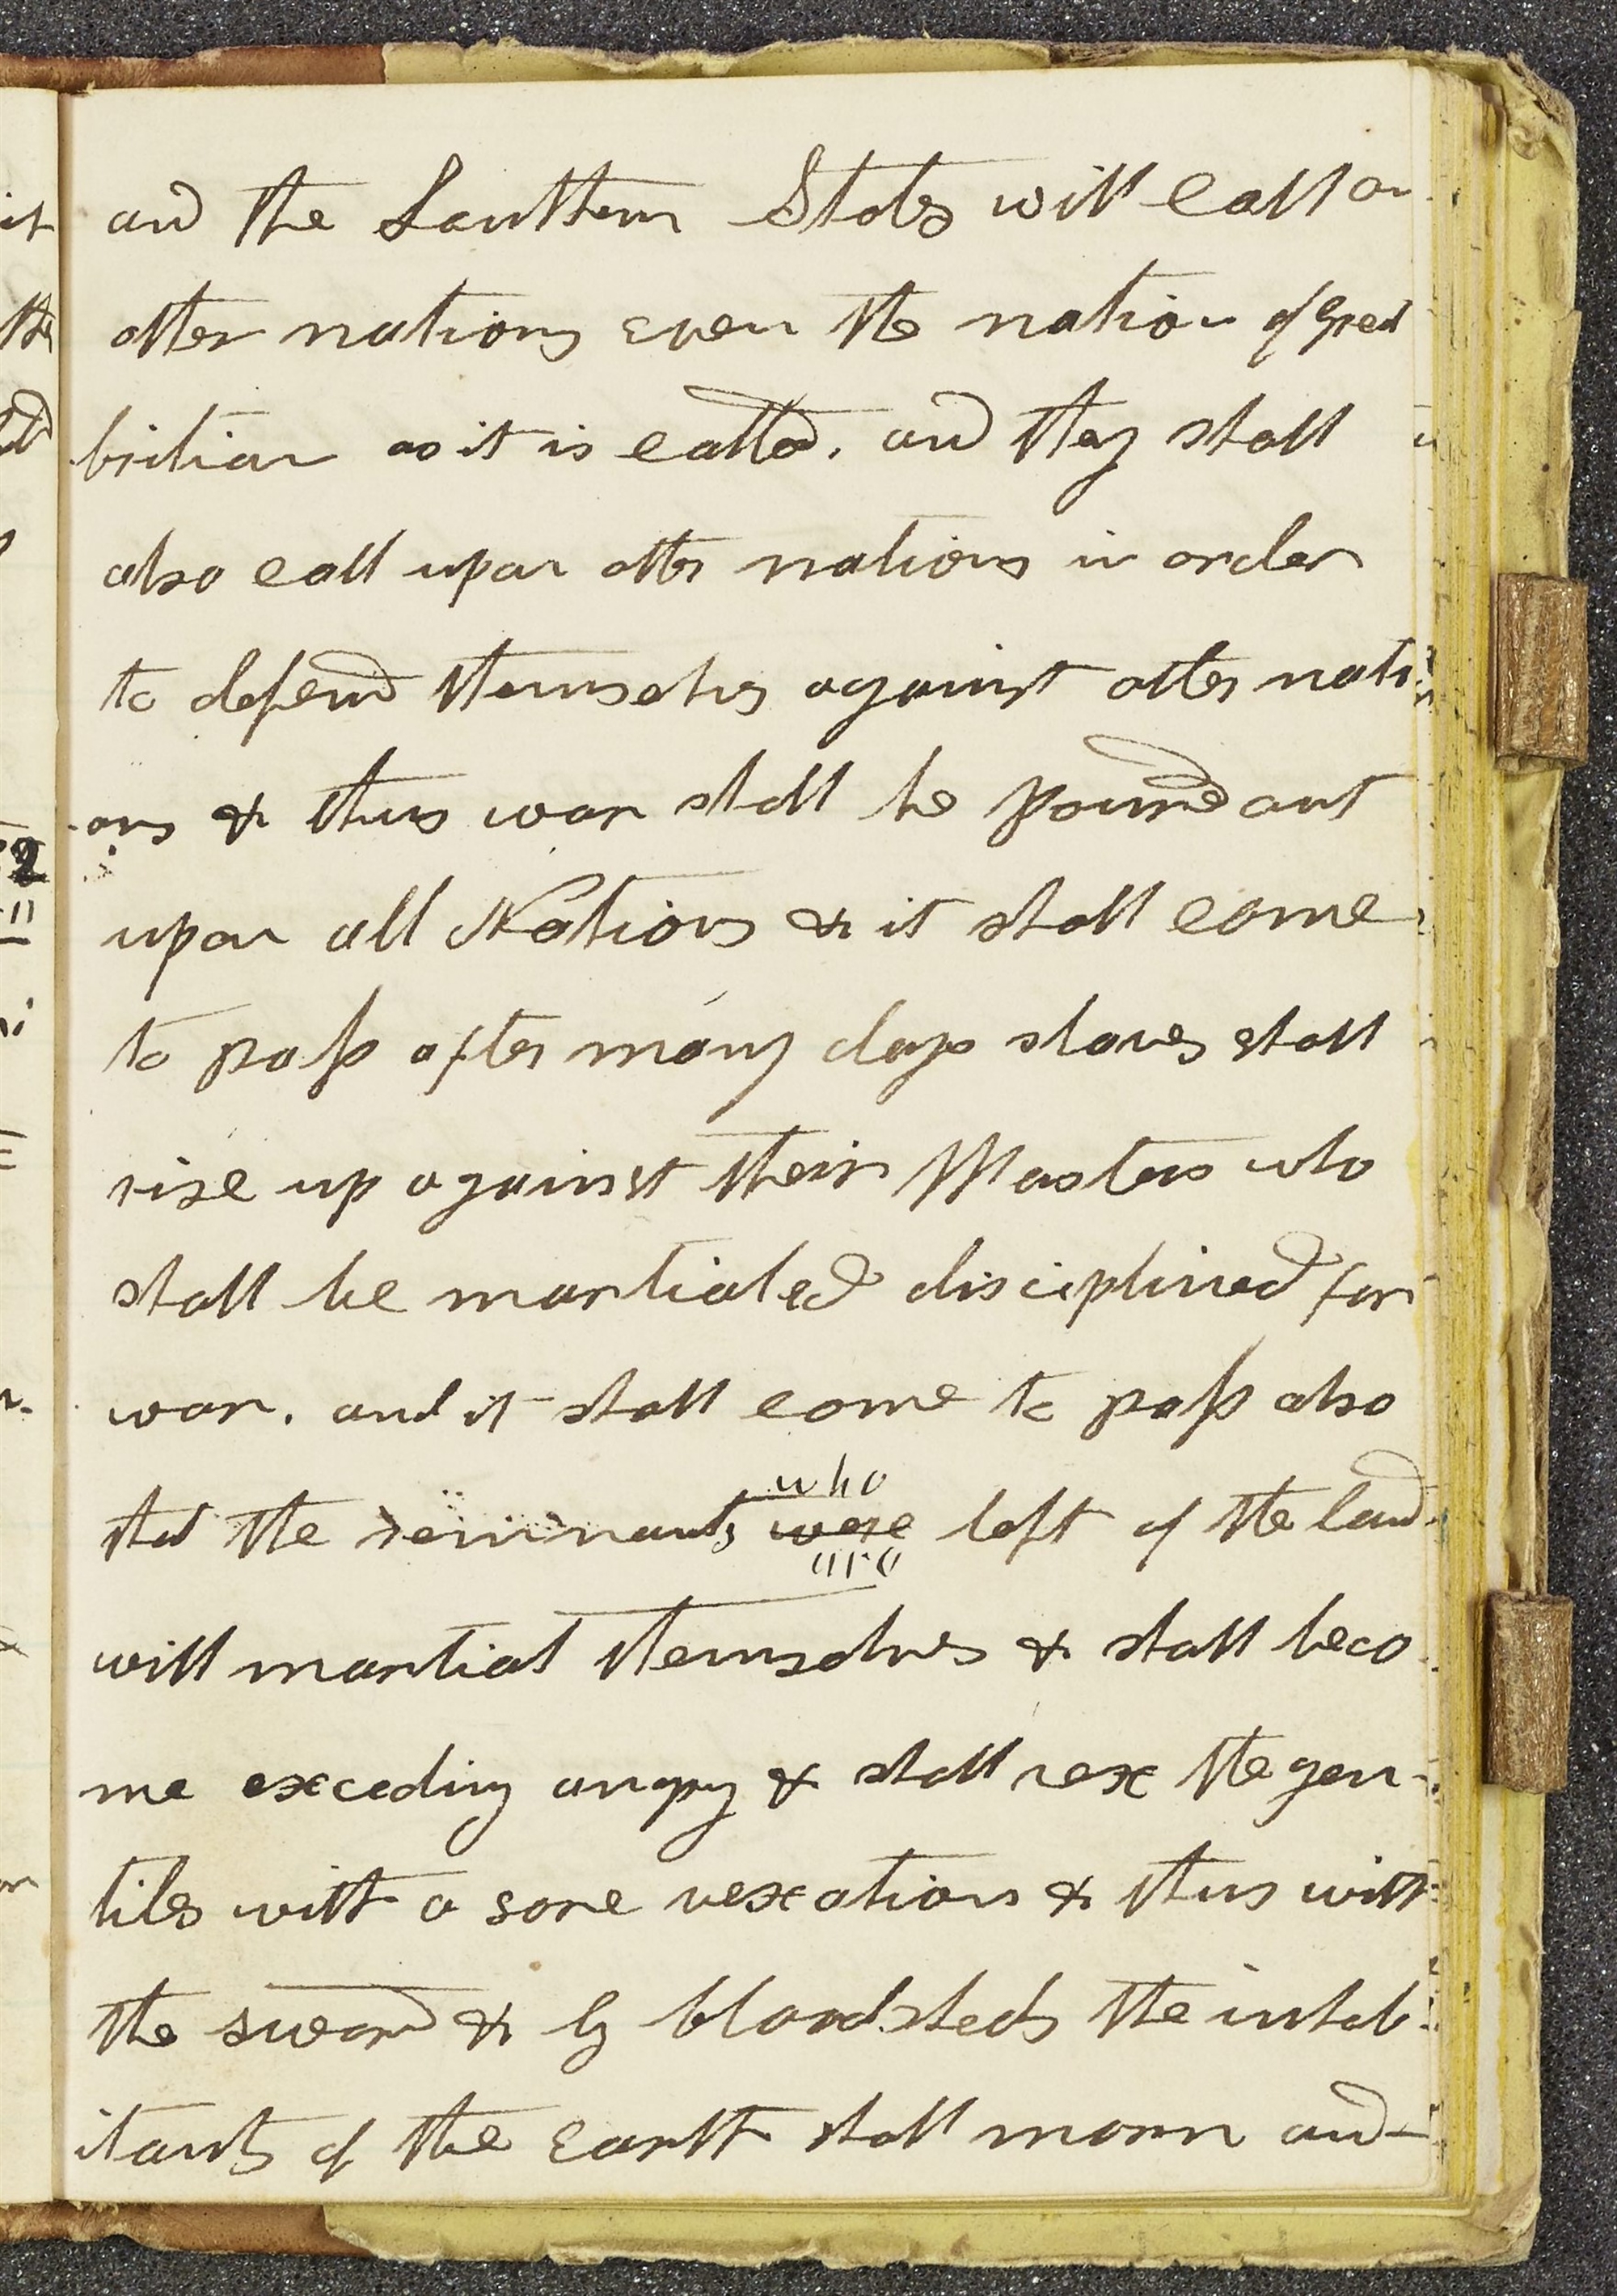 and the Southern States will call on
other nations even the nation of Great
britian as it is called, and they shall
also call upon other nations in order
to defend themselves against other nati
ons & thus war shall be poured out
upon all Nations & it shall come
to pass after many days slaves shall
rise up against their Masters who
shall be martialed disciplined for
war. and it shall come to pass also
that the remnants who were are left of the land
will martial themselves & shall beco
me exceding angry & shall vex the gen-
tiles with a sore vexation & thus with
the sword & by bloodsheds the inhab
itants of the earth shall morn and